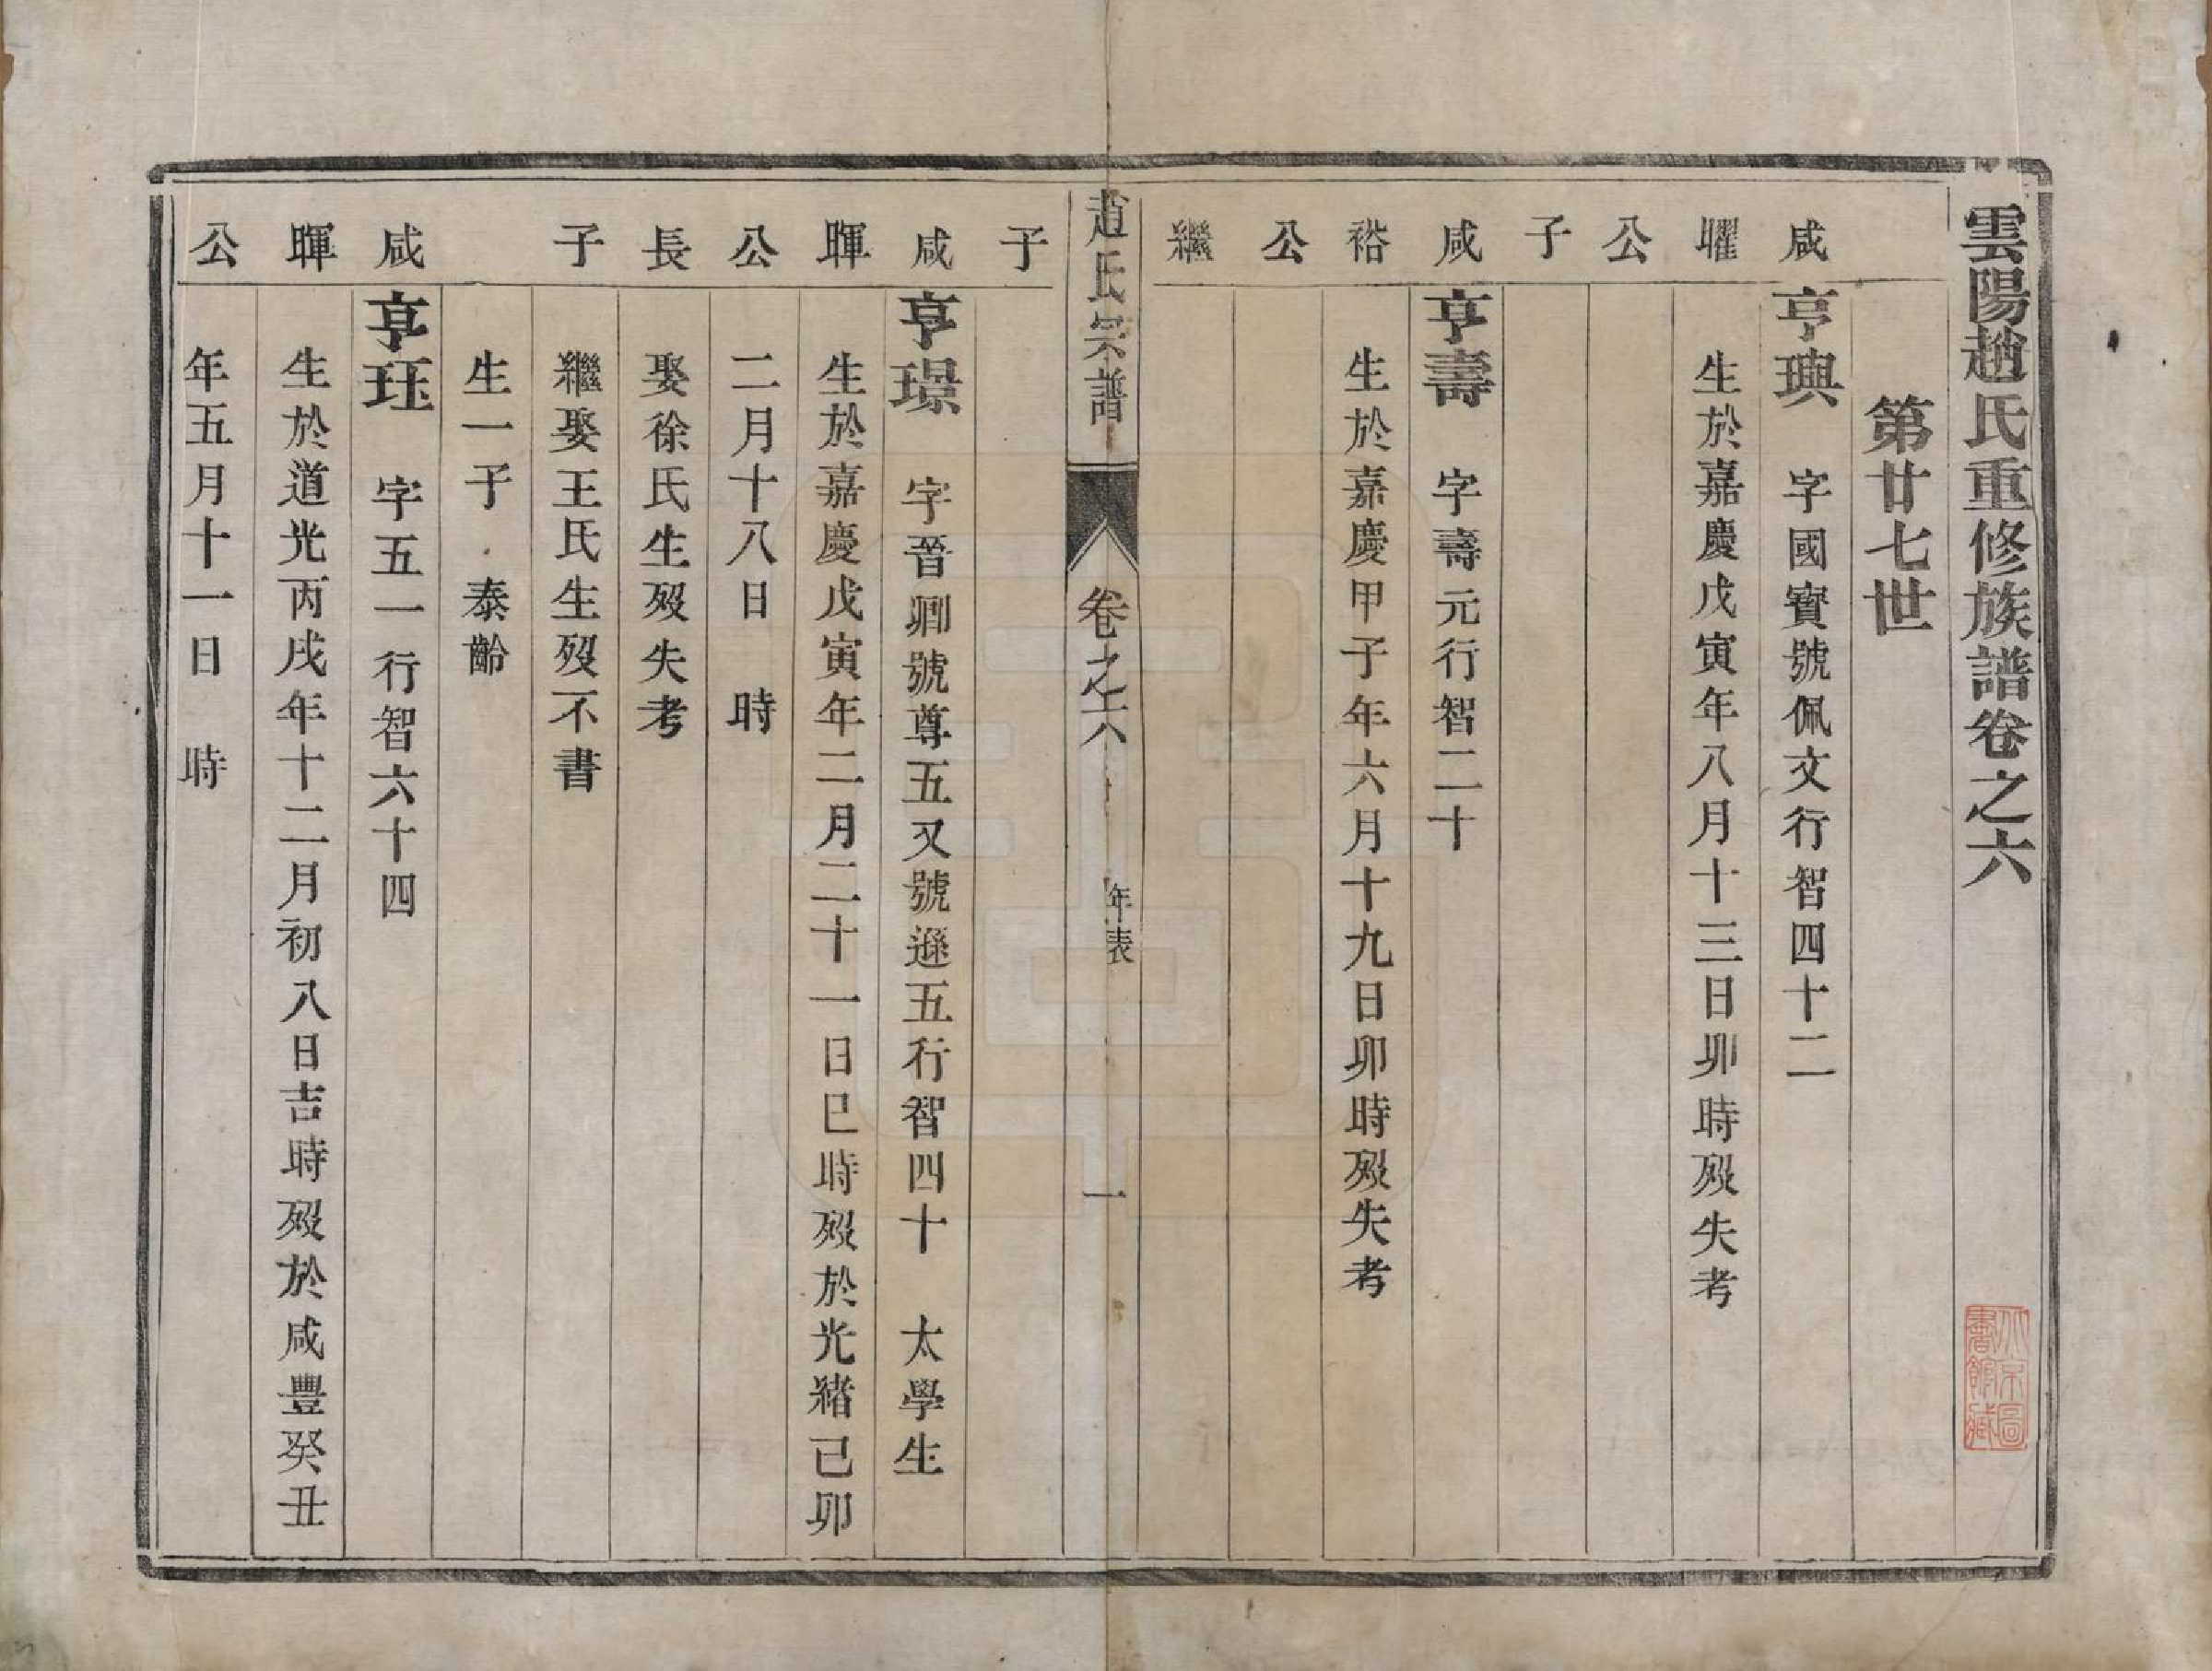 雲陽趙氏重修族譜卷之六
第廿七世
咸 亨璵 字國寶號佩文行智四十二
曜 生於嘉慶戊寅年八月十三日卯時歿失考
公
子
咸 亨壽 字壽元行智二十
裕 生於嘉慶甲子年六月十九日卯時歿失考
公
繼
趙氏宗譜 卷之六 年表 一
子
咸 亨璟 字晉卿號尊五又號遜五行智四十 太學生
暉 生於嘉慶戊寅年二月二十一日巳時歿於光緒己卯
公 二月十八日 時
長 娶徐氏生歿失考
子 繼娶王氏生歿不書
生一子 泰齡
咸 亨珏 字五一行智六十四
暉 生於道光丙戌年十二月初八日吉時歿於咸豐癸丑
公 年五月十一日 時
北京圖書館藏